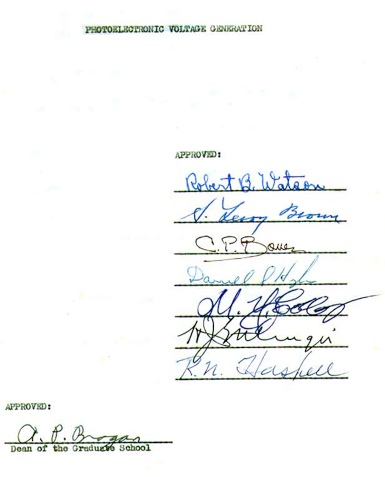 PHOTOELECTRONIC VOLTAGE GENERATION
APPROVED:
Robert B. Watson
S. Leroy Brown
C. P. Boner
Daniel
M. Y. Colby
R. N. Haskell
APPROVED:
A. P. Brogan
Dean of the Graduate School